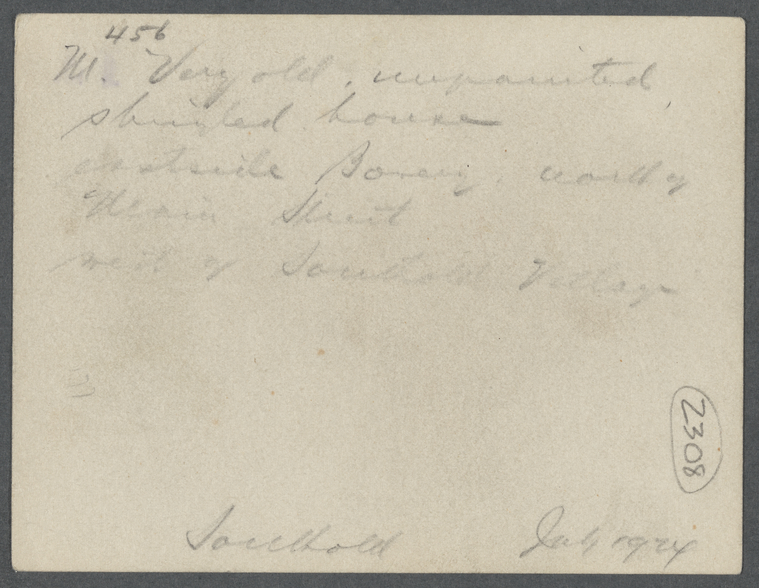 456
M. Very old, unpainted
shingled house
eastside Bowery, north of
Main Street
west of Southold Village
2308
Southold July 1924